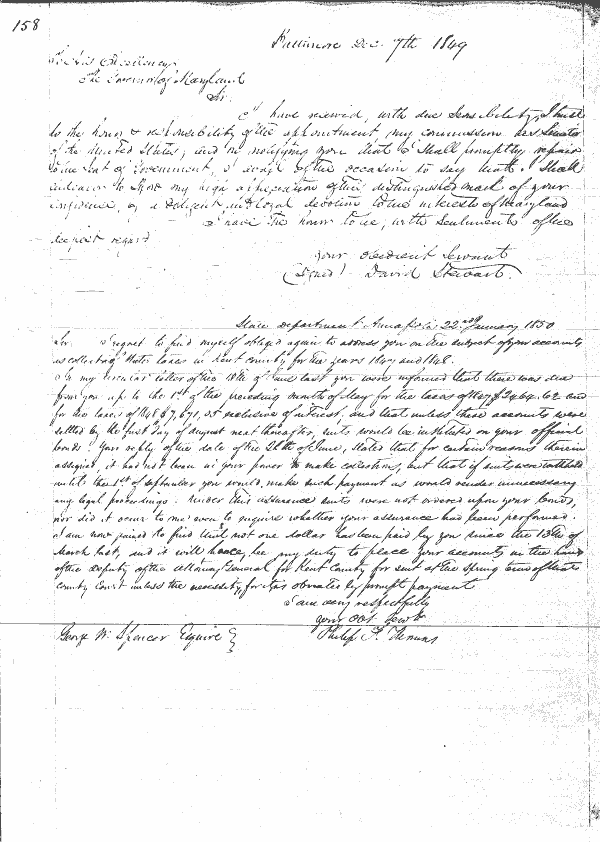 158
Baltimore Dec. 7th 1849
To His Excellency
The Governor of Maryland
Sir.
I have received, with due sensibility, I trust
to the honor & responsibility of the appointment, my commission as Senator
of the United States; and in notifying you that I shall promptly repair
to the seat of Government, I avail of the occasion to say that I shall
endeavor to show my high appreciation of this distinguished mark of your
confidence, by a diligent and loyal devotion to the interests of Maryland
I have the honor to be, with sentiments of the
respect regard
your obedient Servant
(Signed) David Stewart.
State Department Annapolis 22nd January 1850
Sir. I regret to find myself obliged again to address you on the subject of your accounts
as collector of State taxes in Kent County for the years 1847 and 1848.
In my circular letter of the 18th of June last you were informed that there was due
from you up to the 1st of the preceding month of May for the taxes of 1847 $2464.62 and
for the taxes of 1848 $7,671, exclusive of interest. and that unless these accounts were
settled by the first day of August next thereafter, suits would be instituted on your official
bonds. Your reply of the date of the 26th of June, stated that for certain reasons therein
assigned, it had not been in your power to make collections, but that if suits were withheld
until the 1st of September you would make such payment as would render unnecessary
any legal proceedings. Under this assurance suits were not ordered upon your bond,
nor did it occur to me even to inquire whether your assurance had been performed.
I am now pained to find that not one dollar has been paid by you since the 13th of
March last, and it will hence, be my duty to place your accounts in the hands
of the Deputy of the Attorney General for Kent County for suit at the Spring term of that
county Court unless the necessity for it is obviated by prompt payment
I am very respectfully
your obt Servt
George W. Spencer Esquire } Philip F. Thomas